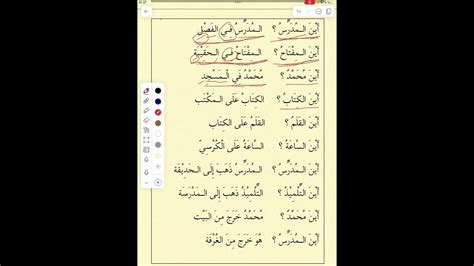 أَيْنَ الـمُدَرِّسُ ؟ الـمُدَرِّسُ فِـي الفَصْلِ
أَيْنَ الـمِفْتَاحُ ؟ الـمِفْتَاحُ فِـي الـحَقِيْبَةِ
أَيْنَ مُحَمَّدٌ ؟ مُحَمَّدٌ فِي الْـمَسْجِدِ
أَيْنَ الكِتَابُ ؟ الكِتَابُ عَلَى الـمَكْتَبِ
أَيْنَ القَلَمُ ؟ القَلَمُ عَلَى الكِتَابِ
أَيْنَ السَّاعَةُ ؟ السَّاعَةُ عَلَى الْكُرْسِيِّ
أَيْنَ الـمُدَرِّسُ ؟ الـمُدَرِّسُ ذَهَبَ إِلَى الـحَدِيْقَةِ
أَيْنَ التِّلْمِيْذُ ؟ التِّلْمِيْذُ ذَهَبَ إِلَى الـمَدْرَسَةِ
أَيْنَ مُحَمَّدٌ ؟ مُحَمَّدٌ خَرَجَ مِنَ البَيْتِ
أَيْنَ الـمُدَرِّسُ ؟ هُوَ خَرَجَ مِنَ الغُرْفَةِ